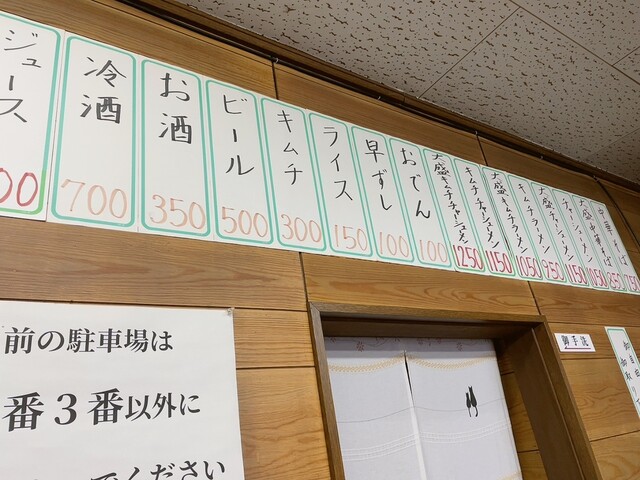 中華そば 750
大盛中華そば 850
チャーシューメン 1050
大盛チャーシューメン 1150
キムチラーメン 950
大盛キムチラーメン 1050
キムチチャーシューメン 1150
大盛キムチチャーシューメン 1250
おでん 100
早ずし 100
ライス 150
キムチ 300
ビール 500
お酒 350
冷酒 700
ジュース 00
前の駐車場は
番3番以外に
でください
御手洗